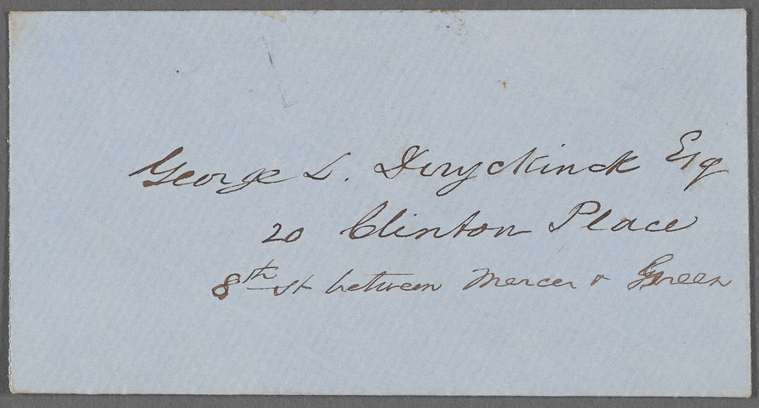 George L. Duyckinck Esq
20 Clinton Place
8th st between Mercer & Green